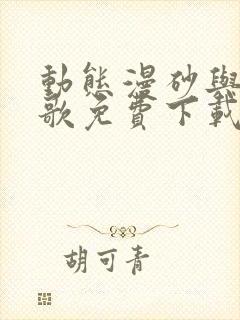 動態漫砂與
歌免費下載
胡可青